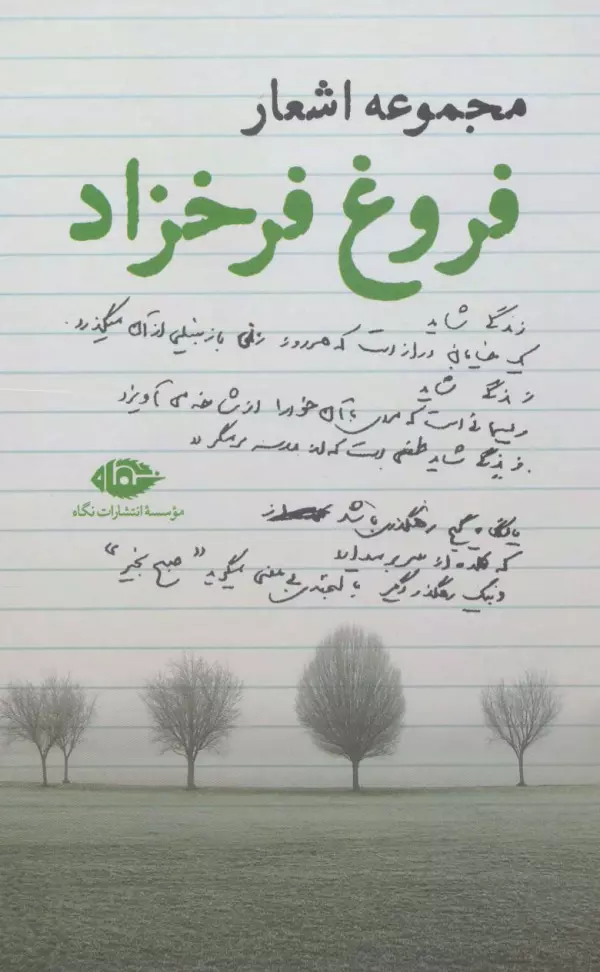 مجموعه اشعار
فروغ فرخزاد
زندگی شاید
یک خیابان دراز است که هر روز زنی با زنبیلی از آن میگذرد.
زندگی شاید
ریسمانی است که مردی با آن خود را از شاخه می آویزد
زندگی شاید طفلی است که از مدرسه بر میگردد
نگاه
مؤسسهٔ انتشارات نگاه
یا نگاه گیج رهگذری باشد
که کلاه از سر بر میدارد
و بیک رهگذر دیگر با لبخندی بی معنی میگوید "صبح بخیر"